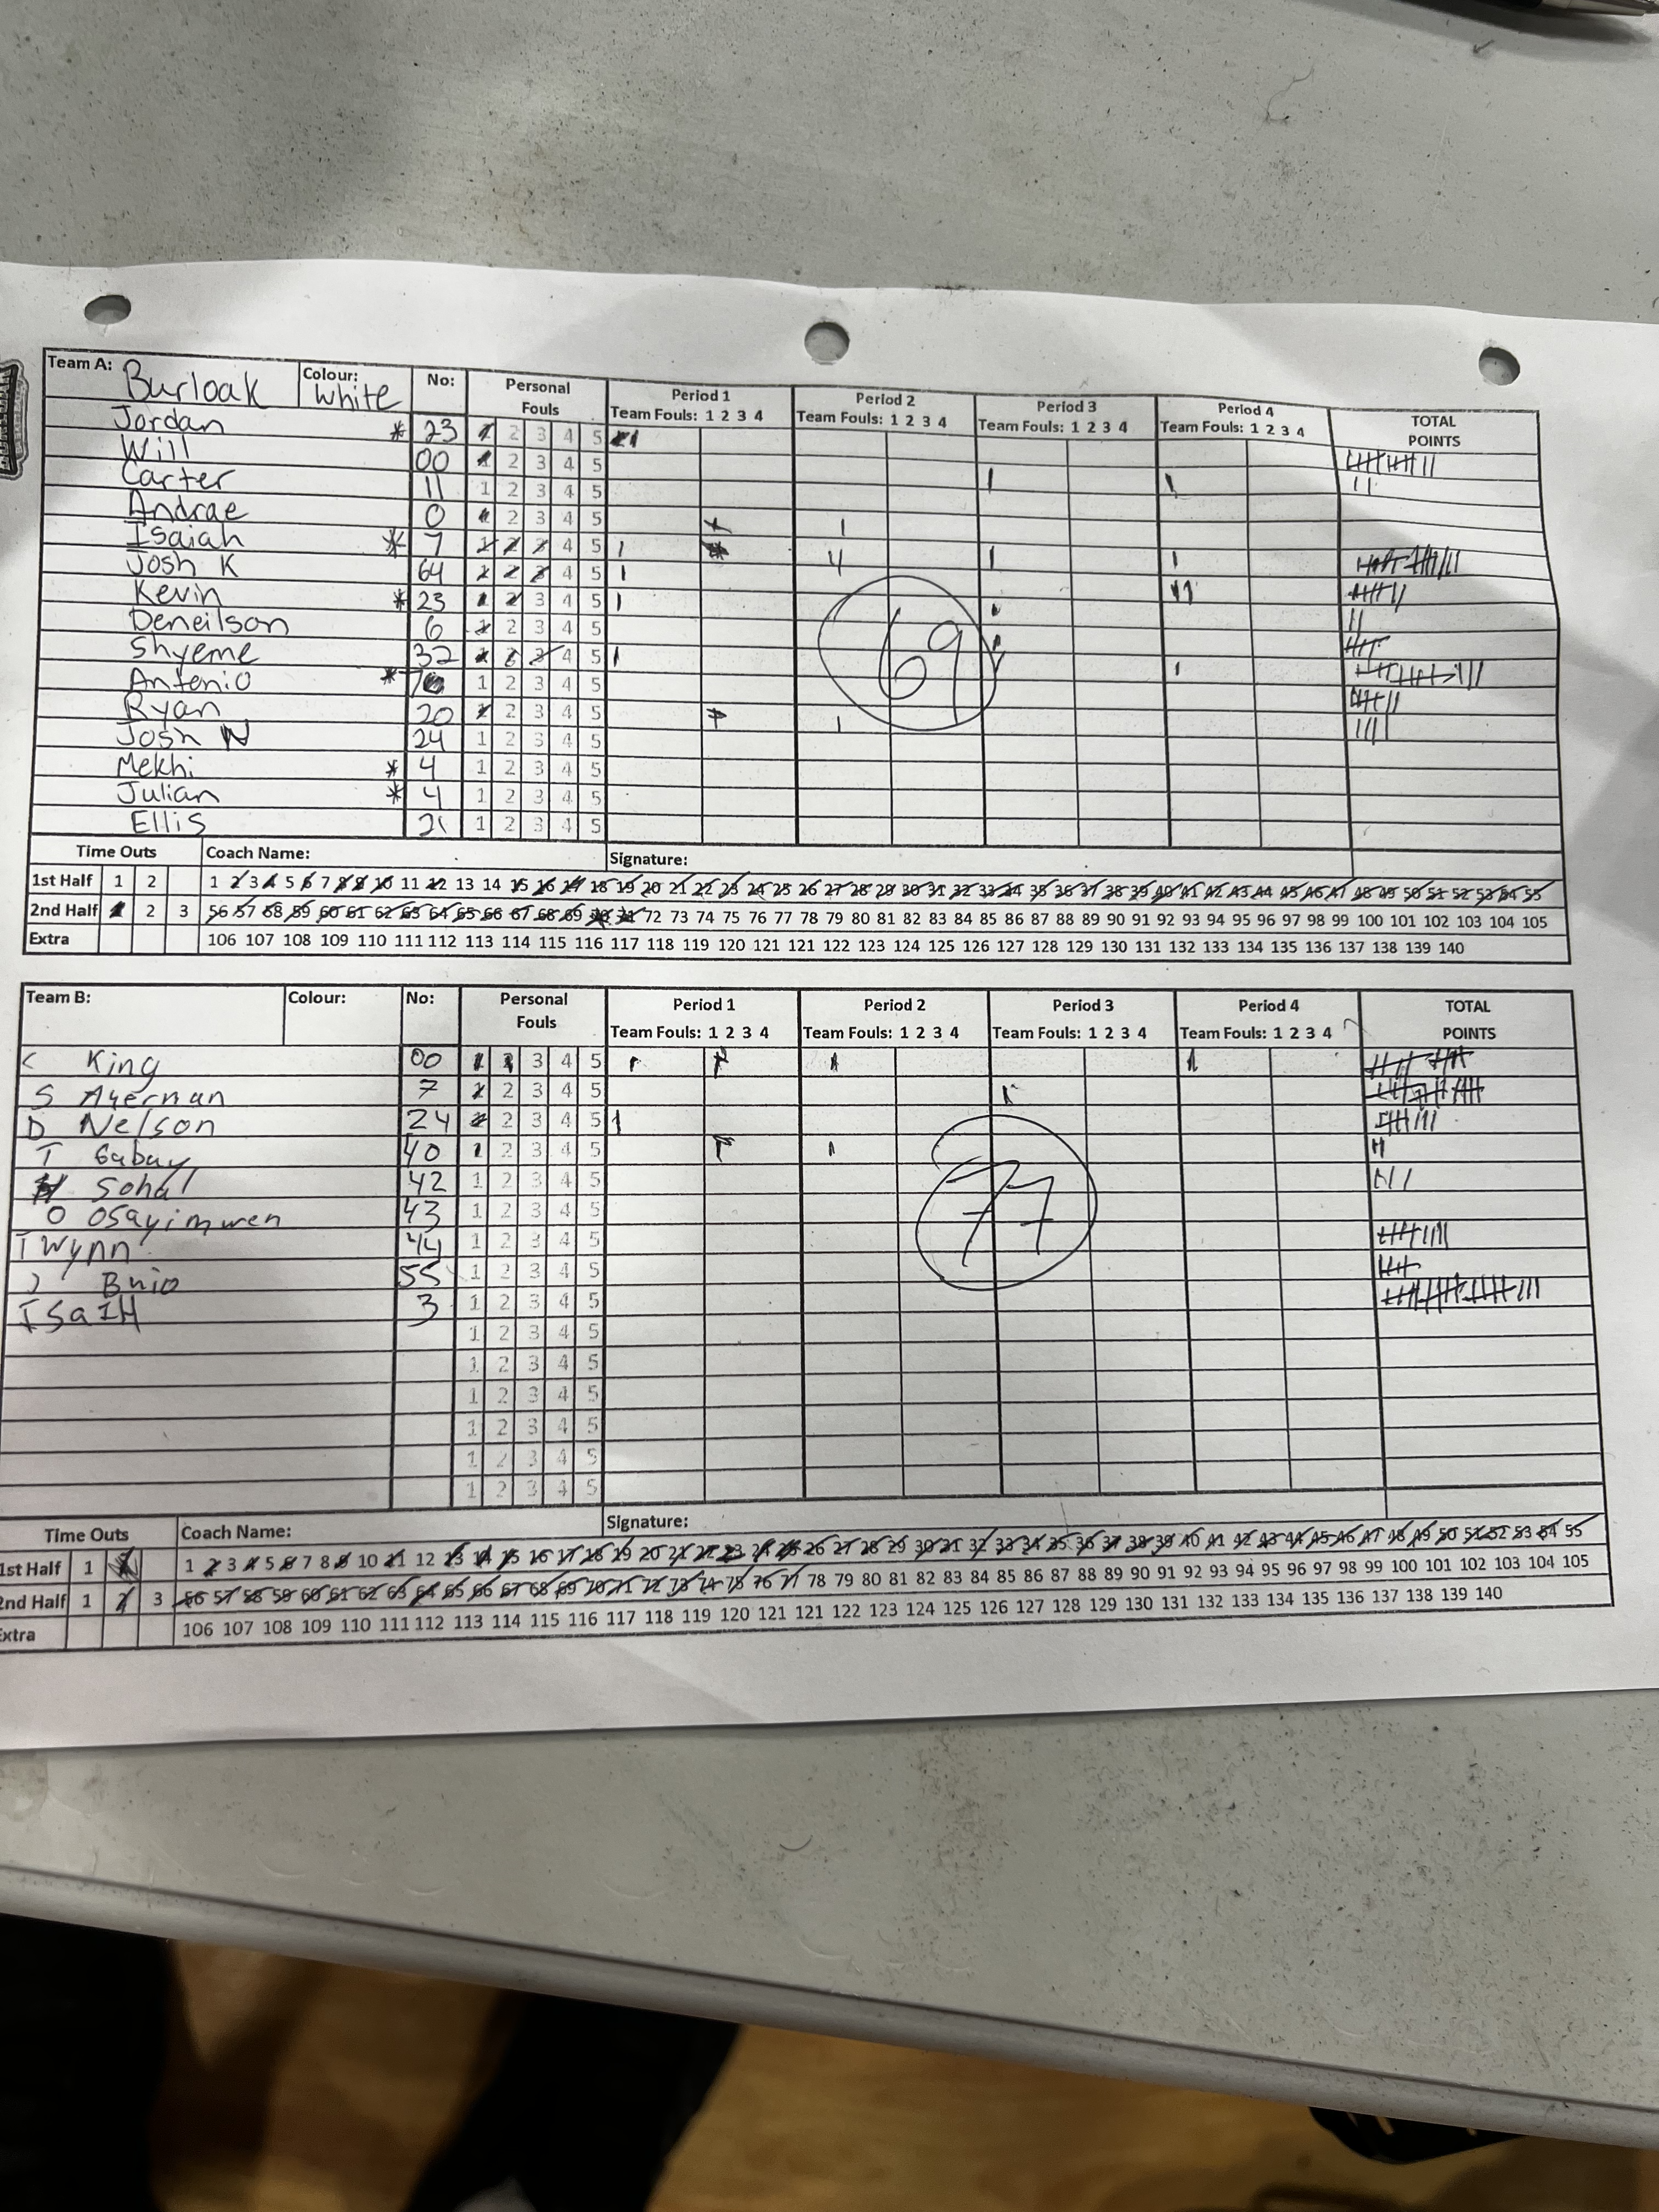 Team A: Burloak Colour: white No: Personal Fouls Period 1 Team Fouls: 1 2 3 4 Period 2 Team Fouls: 1 2 3 4 Period 3 Team Fouls: 1 2 3 4 Period 4 Team Fouls: 1 2 3 4 TOTAL POINTS
Jordan * 23 1 2 3 4 5
Will 00 1 2 3 4 5
Carter 11 1 2 3 4 5
Andrae 0 1 2 3 4 5
Isaiah * 7 1 2 3 4 5 4
Josh K 64 1 2 3 4 5
Kevin * 23 1 2 3 4 5
Deneilson 6 1 2 3 4 5
Shyeme 32 1 2 3 4 5
69
Antonio * 1 2 3 4 5
Ryan 20 1 2 3 4 5
Josh N 24 1 2 3 4 5
Mekhi * 4 1 2 3 4 5
Julian * 4 1 2 3 4 5
Ellis 21 1 2 3 4 5
Time Outs Coach Name: Signature:
1st Half 1 2 1 2 3 4 5 6 7 8 9 10 11 12 13 14 15 16 17 18 19 20 21 22 23 24 25 26 27 28 29 30 31 32 33 34 35 36 37 38 39 40 41 42 43 44 45 46 47 48 49 50 51 52 53 54 55
2nd Half 1 2 3 56 57 58 59 60 61 62 63 64 65 66 67 68 69 70 71 72 73 74 75 76 77 78 79 80 81 82 83 84 85 86 87 88 89 90 91 92 93 94 95 96 97 98 99 100 101 102 103 104 105
Extra 106 107 108 109 110 111 112 113 114 115 116 117 118 119 120 121 121 122 123 124 125 126 127 128 129 130 131 132 133 134 135 136 137 138 139 140
Team B: Colour: No: Personal Fouls Period 1 Team Fouls: 1 2 3 4 Period 2 Team Fouls: 1 2 3 4 Period 3 Team Fouls: 1 2 3 4 Period 4 Team Fouls: 1 2 3 4 TOTAL POINTS
King 00 1 2 3 4 5
S Ayernan 7 1 2 3 4 5
D Nelson 24 1 2 3 4 5
T Gabay 40 1 2 3 4 5
Sohal 42 1 2 3 4 5
77
O Osayimwen 43 1 2 3 4 5
T Wynn 44 1 2 3 4 5
J Bnio 55 1 2 3 4 5
ISaIH 3 1 2 3 4 5
1 2 3 4 5
1 2 3 4 5
1 2 3 4 5
1 2 3 4 5
1 2 3 4 5
1 2 3 4 5
Time Outs Coach Name: Signature:
1st Half 1 1 2 3 4 5 6 7 8 9 10 11 12 13 14 15 16 17 18 19 20 21 22 23 24 25 26 27 28 29 30 31 32 33 34 35 36 37 38 39 40 41 42 43 44 45 46 47 48 49 50 51 52 53 54 55
2nd Half 1 2 3 56 57 58 59 60 61 62 63 64 65 66 67 68 69 70 71 72 73 74 75 76 77 78 79 80 81 82 83 84 85 86 87 88 89 90 91 92 93 94 95 96 97 98 99 100 101 102 103 104 105
Extra 106 107 108 109 110 111 112 113 114 115 116 117 118 119 120 121 121 122 123 124 125 126 127 128 129 130 131 132 133 134 135 136 137 138 139 140